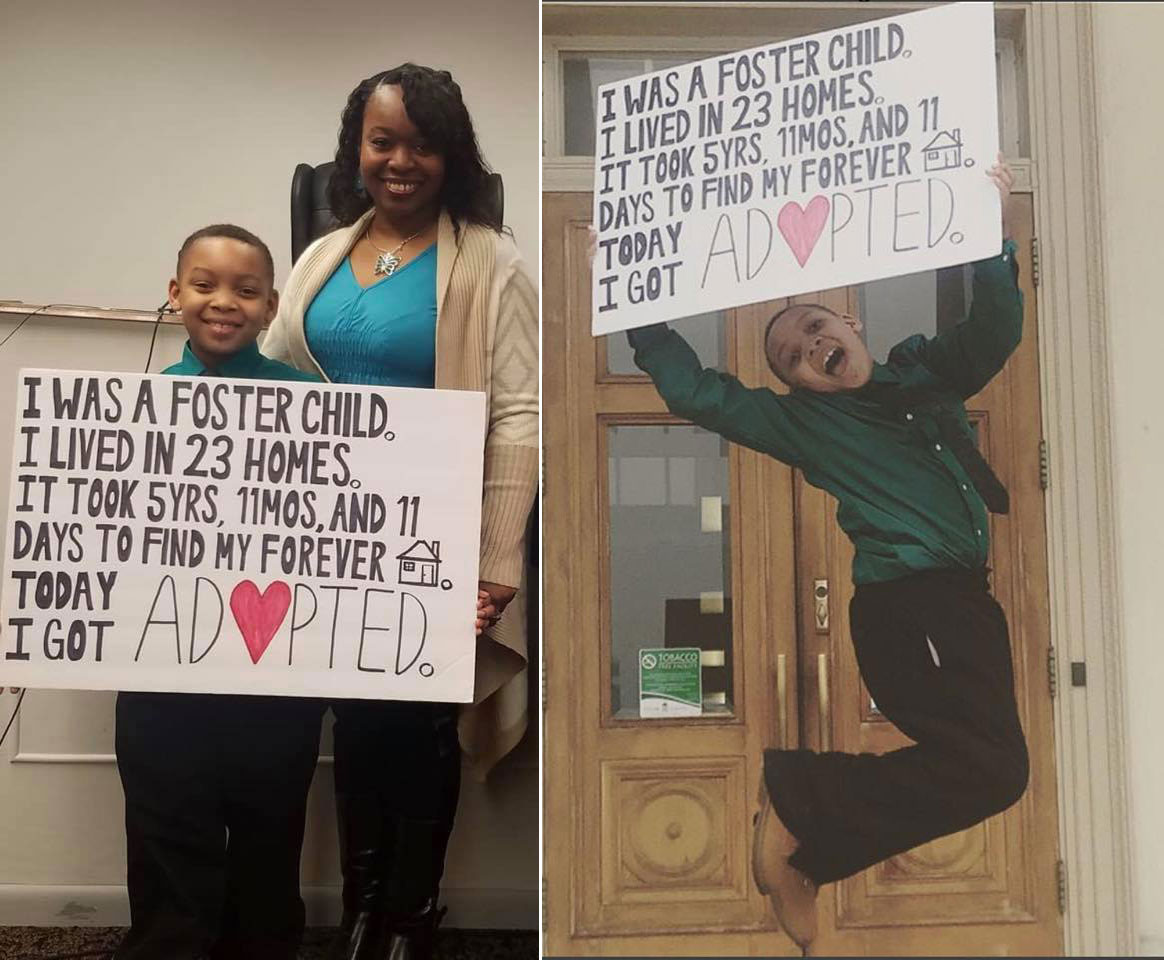 I WAS A FOSTER CHILD.
I LIVED IN 23 HOMES.
IT TOOK 5YRS, 11MOS, AND 11
DAYS TO FIND MY FOREVER
TODAY
I GOT ADOPTED.
I WAS A FOSTER CHILD.
I LIVED IN 23 HOMES.
IT TOOK 5YRS, 11MOS, AND 11
DAYS TO FIND MY FOREVER
TODAY
I GOT ADOPTED.
TOBACCO
FREE FACILITY